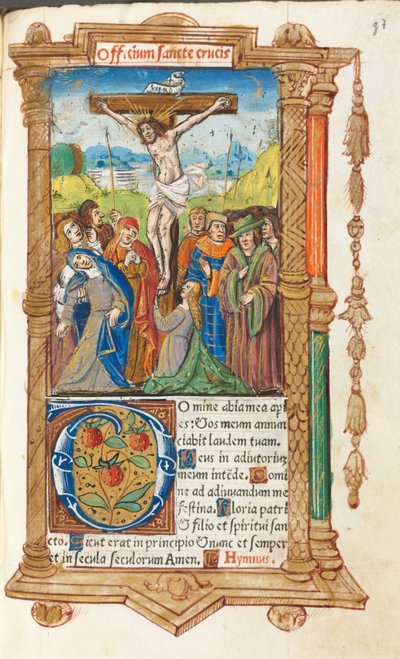 97
Officium sancte crucis
DOmine labia mea aꝑi
es: Et os meum annun
ciabit laudem tuam.
Deus in adiutorium
meum intēde. Domi
ne ad adiuuandum me
festina. Gloria patri
& filio et spiritui san
cto. Sicut erat in principio & nunc et semper
et in secula seculorum Amen. Hymnus.